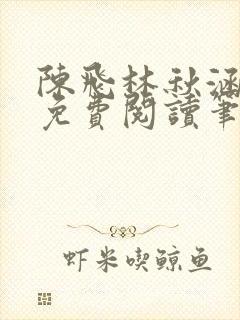 陳飛林秋涵
免費閱讀筆
虾米喫鲸鱼